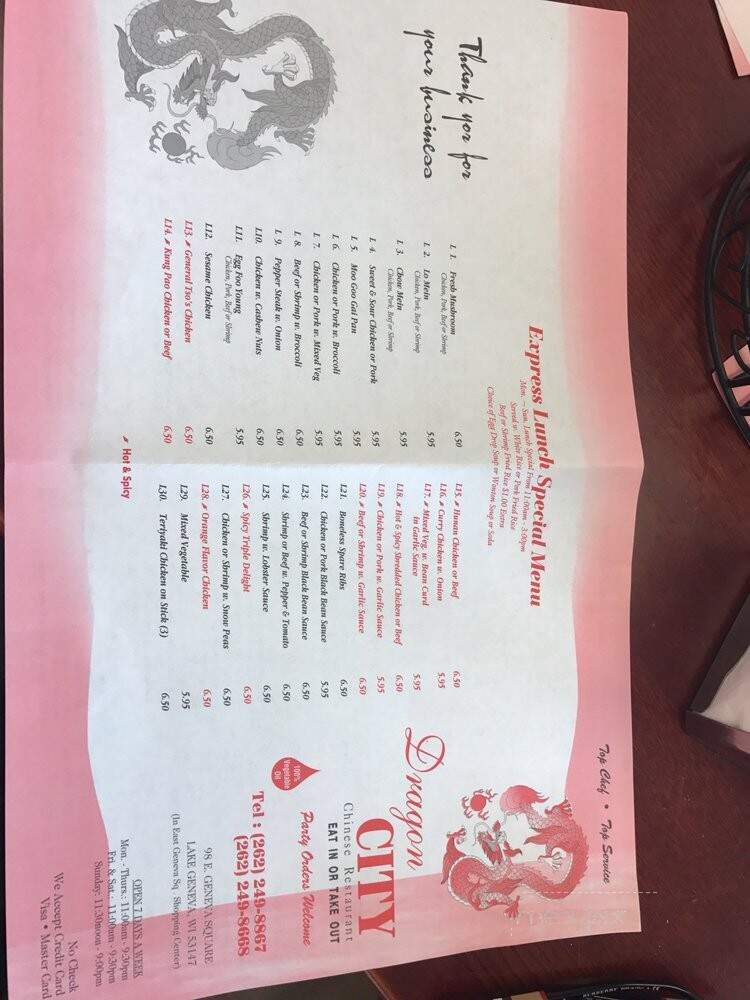 Thank yor for
your business
Express Lunch Special Menu
Mon. ~ Sun. Lunch Special From 11:00am - 3:00pm
Served w. White Rice or Pork Fried Rice
Beef or Shrimp Fried Rice $1.00 Extra
Choice of Egg Drop Soup or Wonton Soup or Soda
L 1. Fresh Mushroom 6.50
Chicken, Pork, Beef or Shrimp
L 2. Lo Mein 5.95
Chicken, Pork, Beef or Shrimp
L 3. Chow Mein 5.95
Chicken, Pork, Beef or Shrimp
L 4. Sweet & Sour Chicken or Pork 5.95
L 5. Moo Goo Gai Pan 5.95
L 6. Chicken or Pork w. Broccoli 5.95
L 7. Chicken or Pork w. Mixed Veg 5.95
L 8. Beef or Shrimp w. Broccoli 6.50
L 9. Pepper Steak w. Onion 6.50
L10. Chicken w. Cashew Nuts 6.50
L11. Egg Foo Young 5.95
Chicken, Pork, Beef or Shrimp
L12. Sesame Chicken 6.50
L13. General Tso's Chicken 6.50
L14. Kung Pao Chicken or Beef 6.50
Hot & Spicy
L15. Hunan Chicken or Beef 6.50
L16. Curry Chicken w. Onion 5.95
L17. Mixed Veg. w. Bean Curd
in Garlic Sauce 5.95
L18. Hot & Spicy Shredded Chicken or Beef 6.50
L19. Chicken or Pork w. Garlic Sauce 5.95
L20. Beef or Shrimp w. Garlic Sauce 6.50
L21. Boneless Spare Ribs 6.50
L22. Chicken or Pork Black Bean Sauce 5.95
L23. Beef or Shrimp Black Bean Sauce 6.50
L24. Shrimp or Beef w. Pepper & Tomato 6.50
L25. Shrimp w. Lobster Sauce 6.50
L26. Spicy Triple Delight 6.50
L27. Chicken or Shrimp w. Snow Peas 6.50
L28. Orange Flavor Chicken 6.50
L29. Mixed Vegetable 5.95
L30. Teriyaki Chicken on Stick (3) 6.50
Top Chef • Top Service
Dragon
CITY
Chinese Restaurant
EAT IN OR TAKE OUT
Party Orders Welcome
100%
Vegetable
Oil
Tel : (262) 249-8867
(262) 249-8668
98 E. GENEVA SQUARE
LAKE GENEVA, WI 53147
(In East Geneva Sq. Shopping Center)
OPEN 7 DAYS A WEEK
Mon. - Thurs.: 11:00am - 9:30pm
Fri. & Sat.: 11:00am - 9:30pm
Sunday: 11:30noon - 9:00pm
No Check
We Accept Credit Card
Visa • Master Card